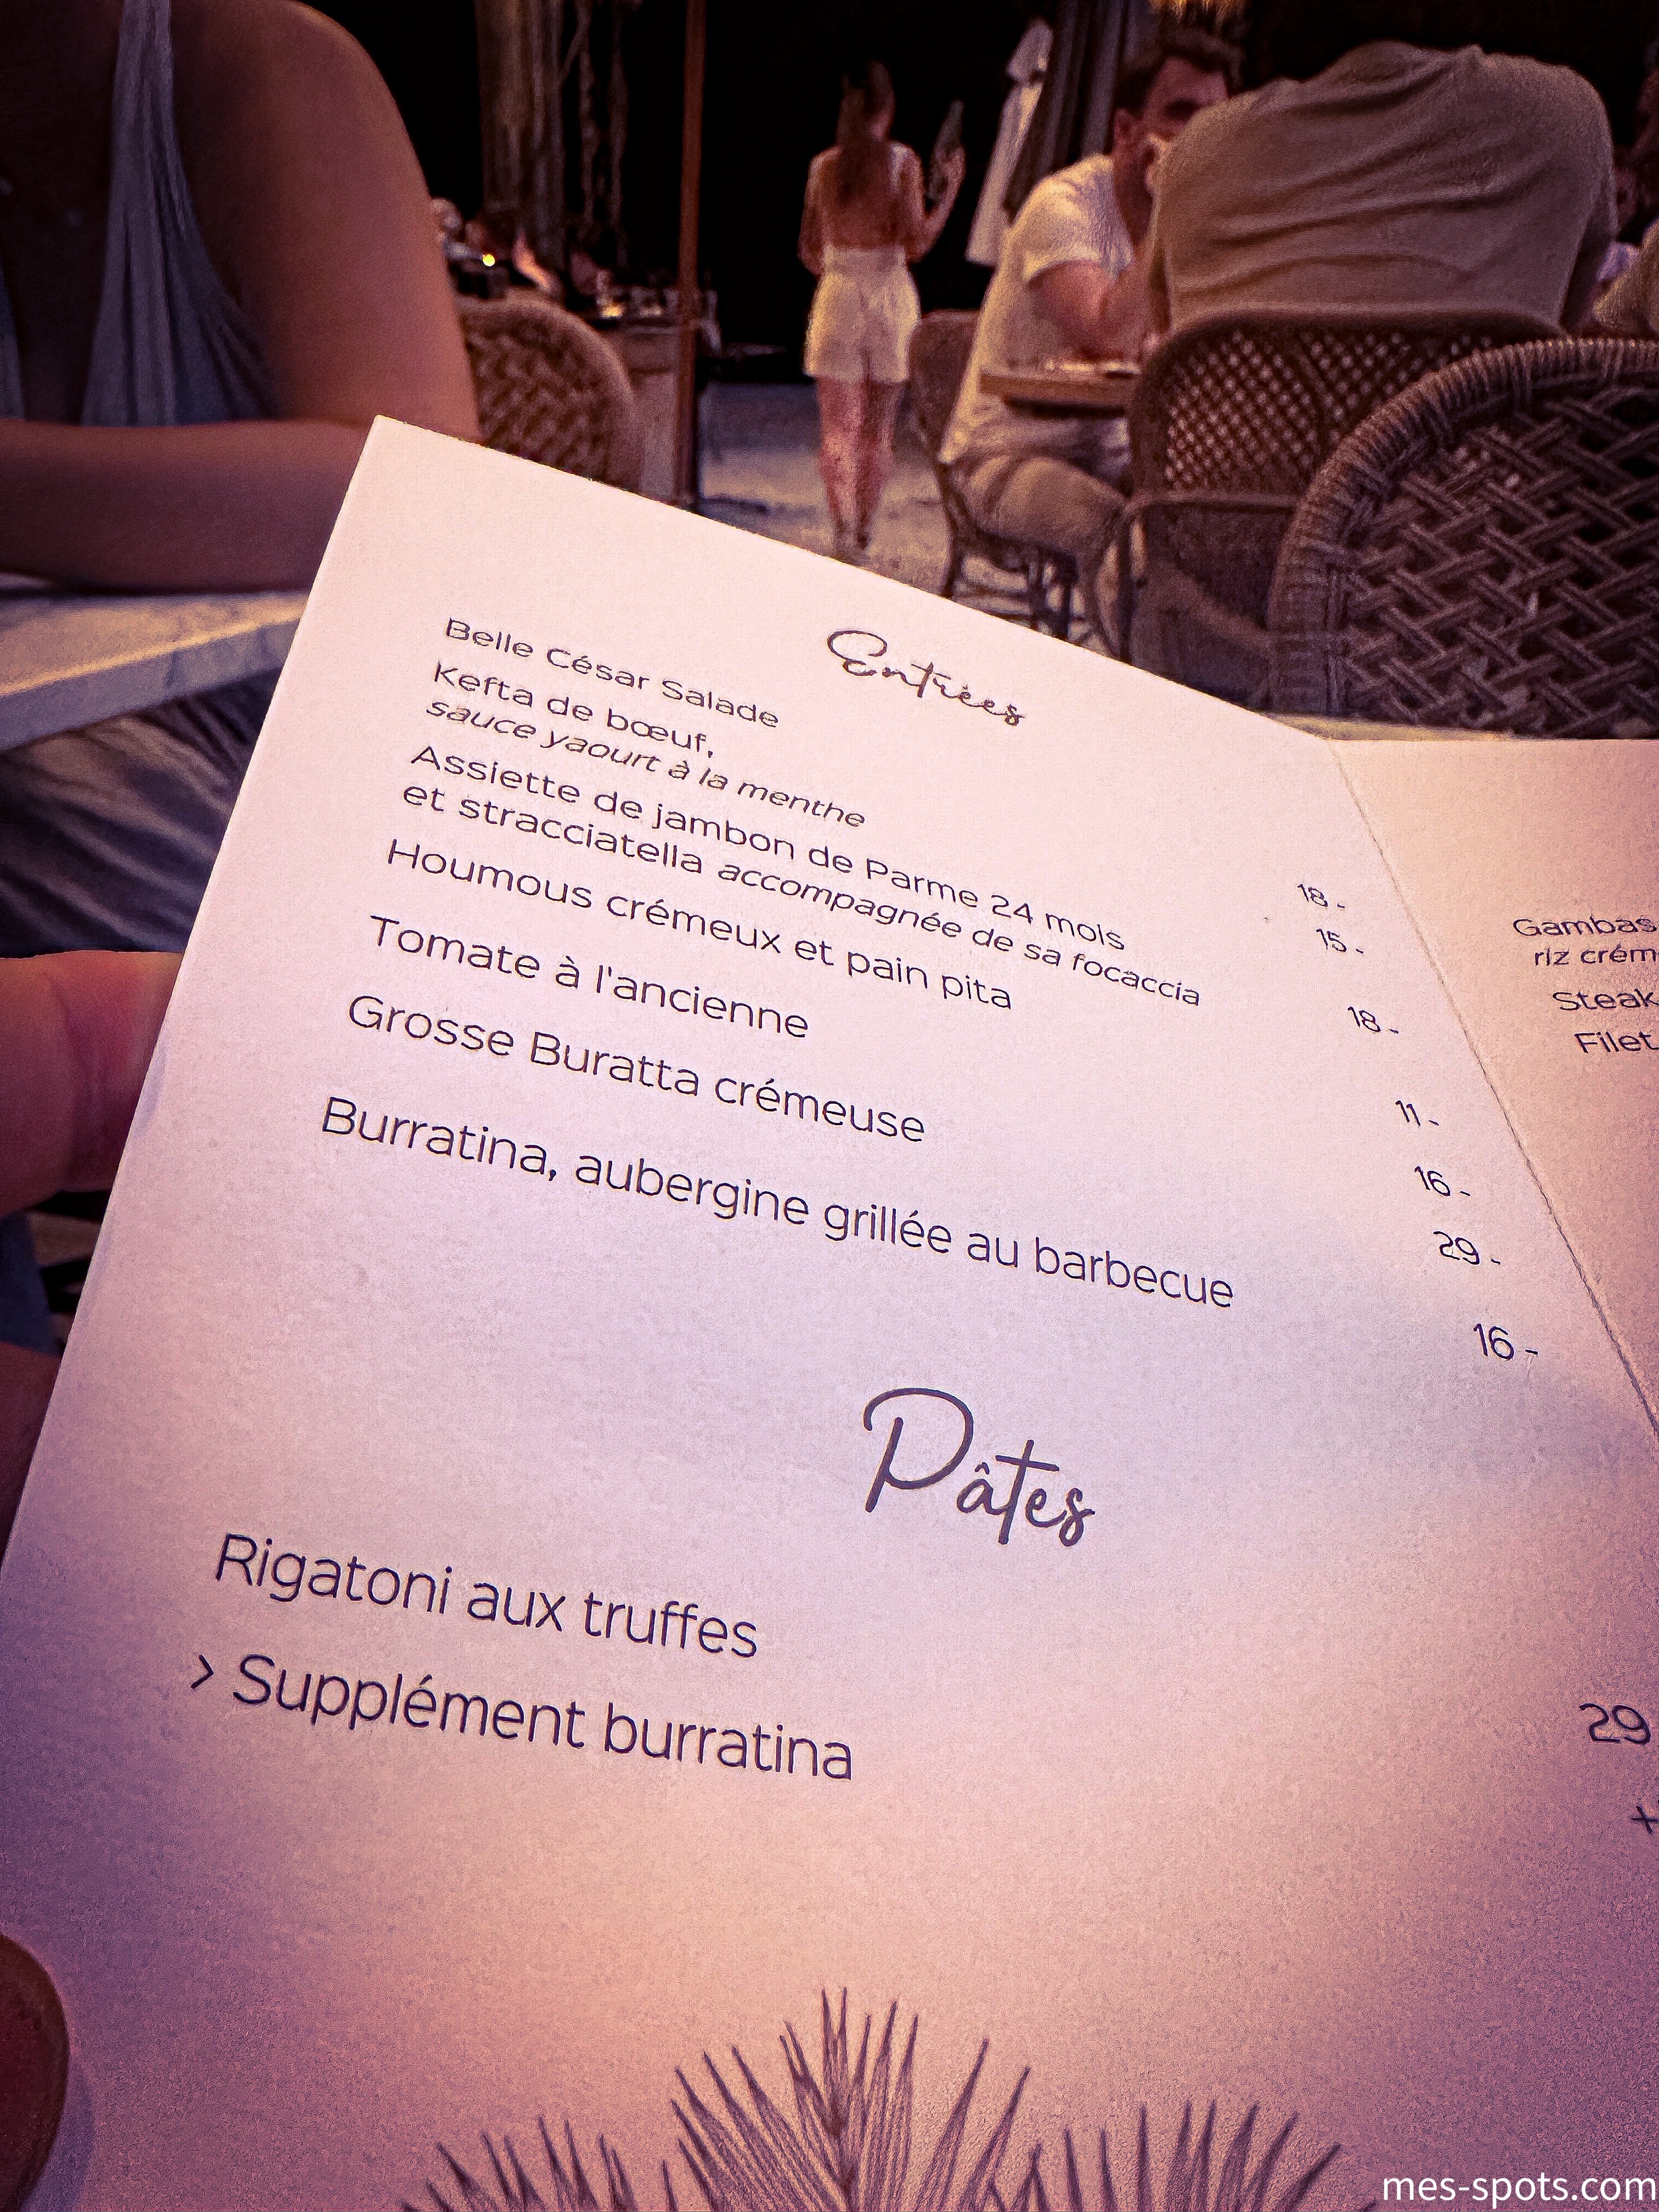 Entrées
Belle César Salade 18.-
Kefta de bœuf, 15.-
sauce yaourt à la menthe
Assiette de jambon de Parme 24 mois
et stracciatella accompagnée de sa focaccia 18.-
Houmous crémeux et pain pita 11.-
Tomate à l'ancienne 16.-
Grosse Buratta crémeuse 29.-
Burratina, aubergine grillée au barbecue 16.-
Pâtes
Rigatoni aux truffes 29
> Supplément burratina +
Gambas
riz crém
Steak
Filet
mes-spots.com